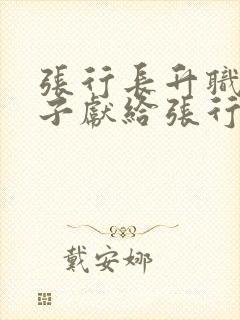 張行長升職
子獻給張行
戴安娜